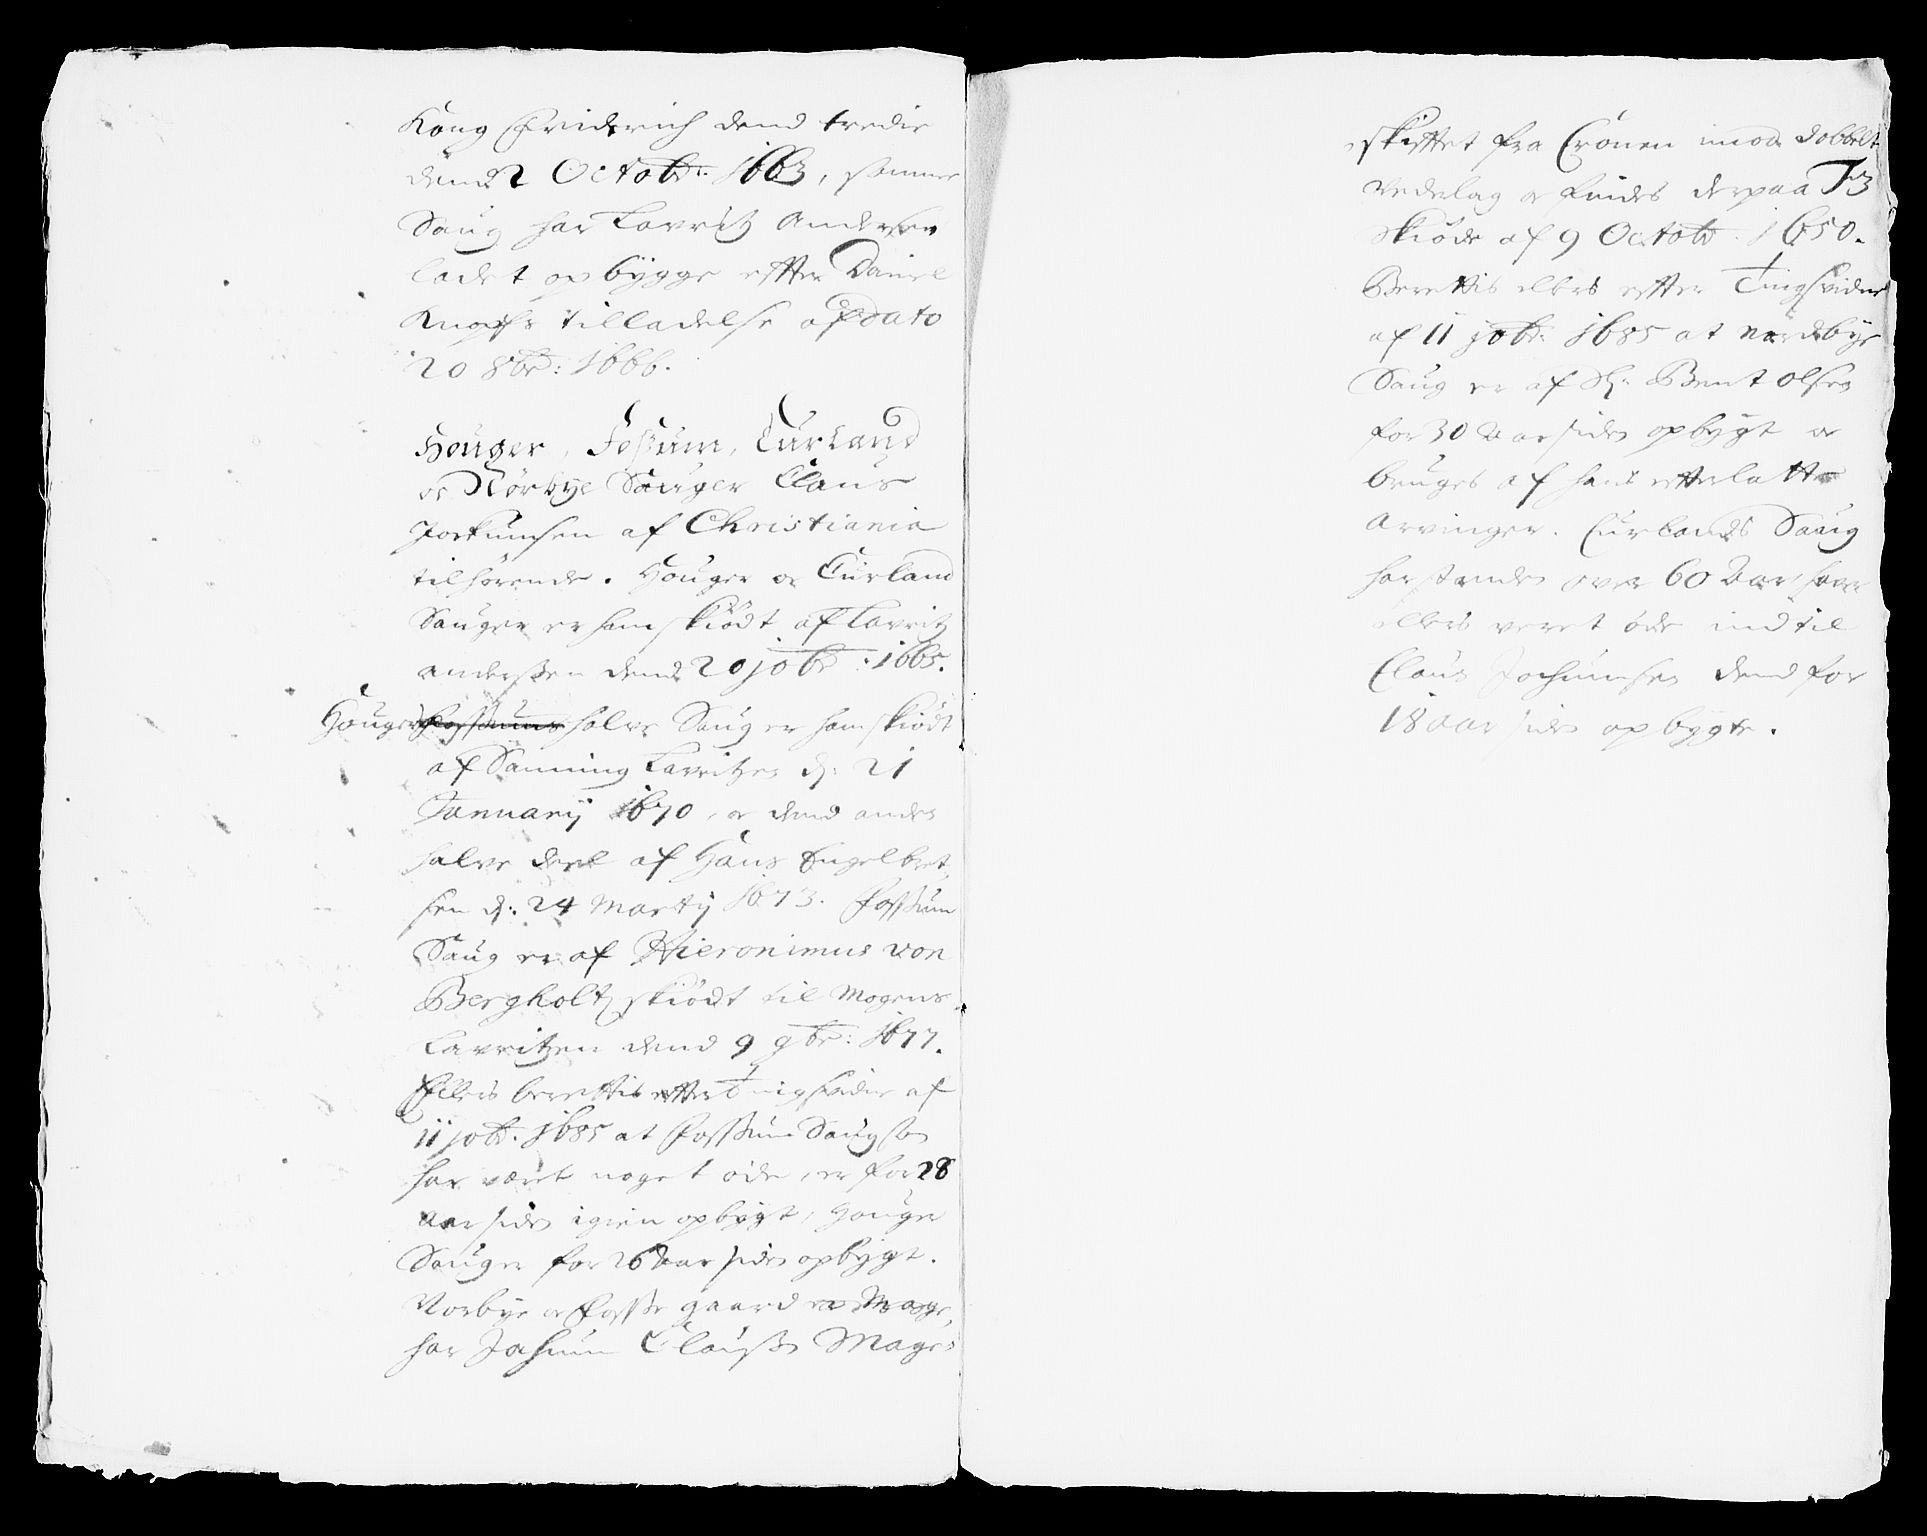 Kong Friderich dend tredie
dend 2 Octobr: 1663, samme
Saug har Lavritz Andersen
ladet opbygge effter Daniel
Knopfs tilladelse af dato
20 8br: 1666.
Houger, Foßum, Curland
oc Nörbye Sauger Claus
Jockumsen af Christiania
tilhörende. Houger oc Curland
Sauger er ham skiödt af Lavritz
Anderßen dend 20 jobr: 1665.
Houger Foßums halve Saug er ham skiödt
af Lavritzen d: 21
Januarij 1670, oc dend anden
halve deel af Hans Engelbret
sen d: 24 Martij 1673. Foßum
Saug er af Hieronimus von
Bergholtz skiödt til Mogens
Lavritzen dend 9 9br: 1677.
Ellers berettis effter tingsvidne af
11 jobr. 1685 at Foßum Saug som
har været noget öde, er for 28
Aar siden igien opbygt, Houger
Sauger for 26 Aar siden opbygt.
Norbye oc Foße gaard
har Johum Clauß Mage,
skifftet fra Cronen imod dobbelt
Vederlag oc findes derpaa
Skiöde af 9 Octobr. 1650.
Berettis ellers effter Tingsvidne
af 11 jobr: 1685 at Nordbye
Saug er af Sl: Bent Olsen
for 30 Aar siden opbygt oc
bruges af hans effterlatte
Arvinger. Curlands Saug
har standen over 60 Aar, haver
ellers veret öde indtil
Claus Jochumsen dend for
18 aar siden opbygte.